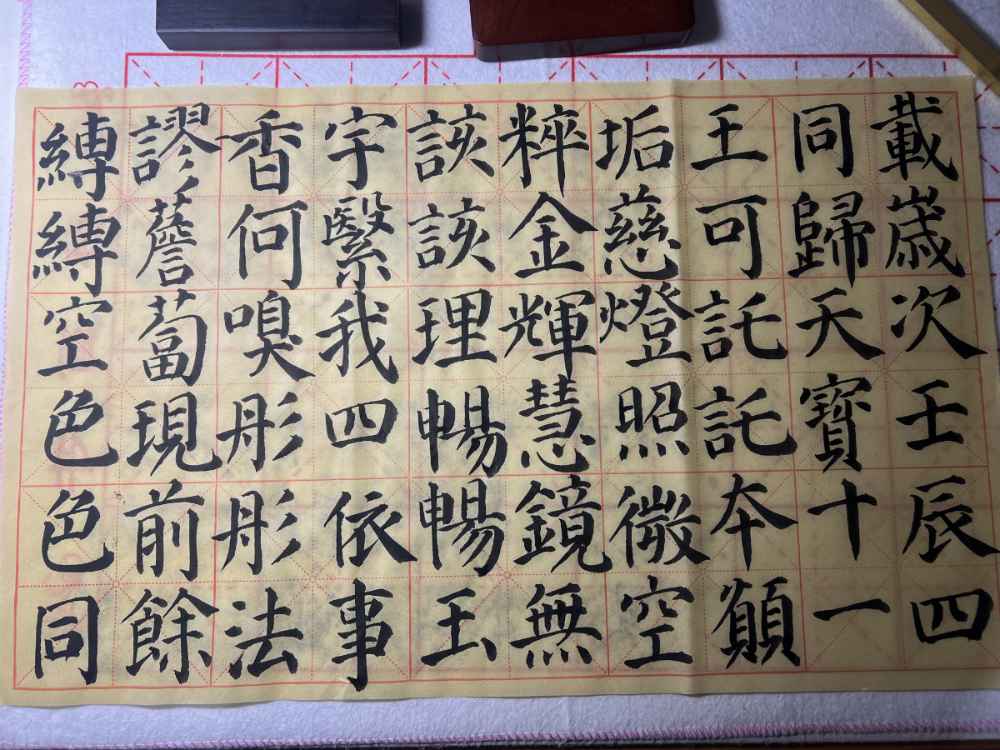 載歲次壬辰四
同歸天寶十一
王可託託夲願
垢慈燈照微空
粹金輝慧鏡無
該該理暢暢玉
宇繄我四依事
香何嗅彤彤法
謬薝蔔現前餘
縛縛空色色同